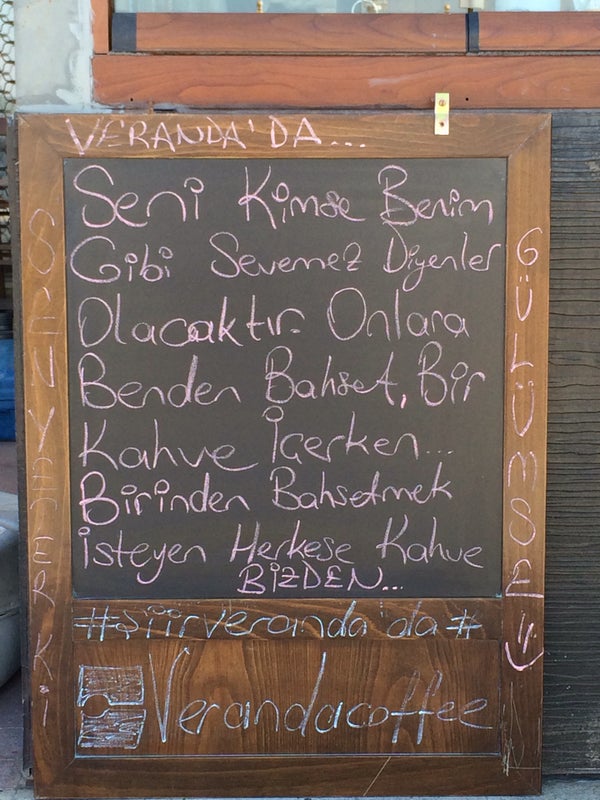 VERANDA'DA...
Seni Kimse Benim
Gibi Sevemez Diyenler
Olacaktır. Onlara
Benden Bahset, Bir
Kahve İçerken...
Birinden Bahsetmek
İsteyen Herkese Kahve
BİZDEN...
SENYETERKİ
GÜLÜMSE
#şiirveranda'da#
Verandacoffee